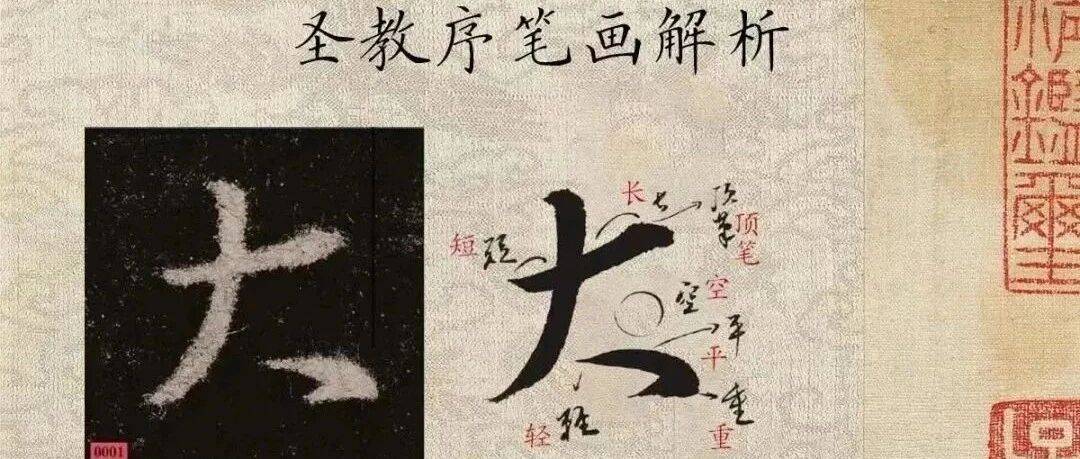 圣教序笔画解析
大
0001
大
长
长
顶笔
顶笔
短
短
空
空
平
平
轻
轻
重
重